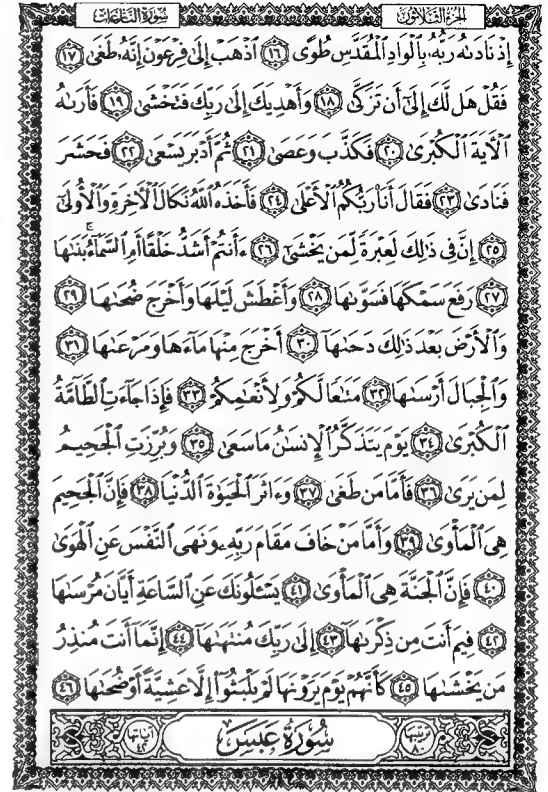 الجزء الثلاثون سورة النازعات
إِذْ نَادَىٰهُ رَبُّهُۥ بِالْوَادِ الْمُقَدَّسِ طُوًى ١٦ اذْهَبْ إِلَىٰ فِرْعَوْنَ إِنَّهُۥ طَغَىٰ ١٧
فَقُلْ هَل لَّكَ إِلَىٰٓ أَن تَزَكَّىٰ ١٨ وَأَهْدِيَكَ إِلَىٰ رَبِّكَ فَتَخْشَىٰ ١٩ فَأَرَىٰهُ
الْآيَةَ الْكُبْرَىٰ ٢٠ فَكَذَّبَ وَعَصَىٰ ٢١ ثُمَّ أَدْبَرَ يَسْعَىٰ ٢٢ فَحَشَرَ
فَنَادَىٰ ٢٣ فَقَالَ أَنَا۠ رَبُّكُمُ الْأَعْلَىٰ ٢٤ فَأَخَذَهُ اللَّهُ نَكَالَ الْآخِرَةِ وَالْأُولَىٰٓ
٢٥ إِنَّ فِي ذَٰلِكَ لَعِبْرَةً لِّمَن يَخْشَىٰٓ ٢٦ ءَأَنتُمْ أَشَدُّ خَلْقًا أَمِ السَّمَآءُ ۚ بَنَىٰهَا
٢٧ رَفَعَ سَمْكَهَا فَسَوَّىٰهَا ٢٨ وَأَغْطَشَ لَيْلَهَا وَأَخْرَجَ ضُحَىٰهَا ٢٩
وَالْأَرْضَ بَعْدَ ذَٰلِكَ دَحَىٰهَآ ٣٠ أَخْرَجَ مِنْهَا مَآءَهَا وَمَرْعَىٰهَا ٣١
وَالْجِبَالَ أَرْسَىٰهَا ٣٢ مَتَٰعًا لَّكُمْ وَلِأَنْعَٰمِكُمْ ٣٣ فَإِذَا جَآءَتِ الطَّآمَّةُ
الْكُبْرَىٰ ٣٤ يَوْمَ يَتَذَكَّرُ الْإِنسَٰنُ مَا سَعَىٰ ٣٥ وَبُرِّزَتِ الْجَحِيمُ
لِمَن يَرَىٰ ٣٦ فَأَمَّا مَن طَغَىٰ ٣٧ وَءَاثَرَ الْحَيَوٰةَ الدُّنْيَا ٣٨ فَإِنَّ الْجَحِيمَ
هِيَ الْمَأْوَىٰ ٣٩ وَأَمَّا مَنْ خَافَ مَقَامَ رَبِّهِۦ وَنَهَى النَّفْسَ عَنِ الْهَوَىٰ
٤٠ فَإِنَّ الْجَنَّةَ هِيَ الْمَأْوَىٰ ٤١ يَسْـَٔلُونَكَ عَنِ السَّاعَةِ أَيَّانَ مُرْسَىٰهَا
٤٢ فِيمَ أَنتَ مِن ذِكْرَىٰهَآ ٤٣ إِلَىٰ رَبِّكَ مُنتَهَىٰهَآ ٤٤ إِنَّمَآ أَنتَ مُنذِرُ
مَن يَخْشَىٰهَا ٤٥ كَأَنَّهُمْ يَوْمَ يَرَوْنَهَا لَمْ يَلْبَثُوٓا۟ إِلَّا عَشِيَّةً أَوْ ضُحَىٰهَا ٤٦
ترتيبها ٨٠ سُورَةُ عَبَسَ آياتها ٤٢